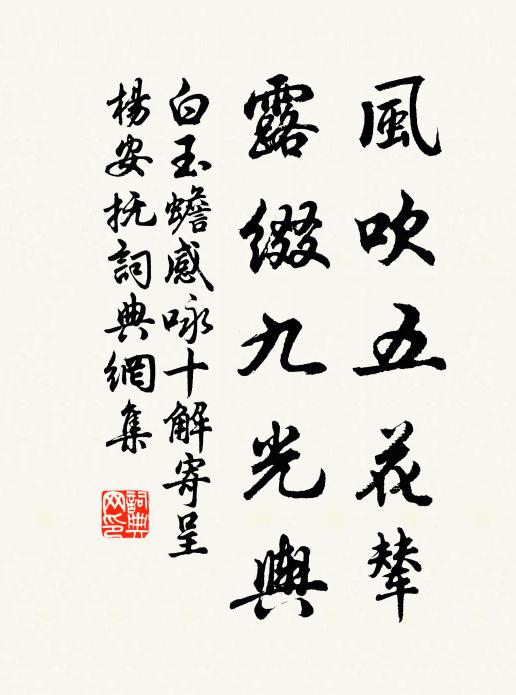 風吹五花輦
露綴九光輿
白玉蟾感咏十解寄呈
楊安抚詞典網集
詞典网印